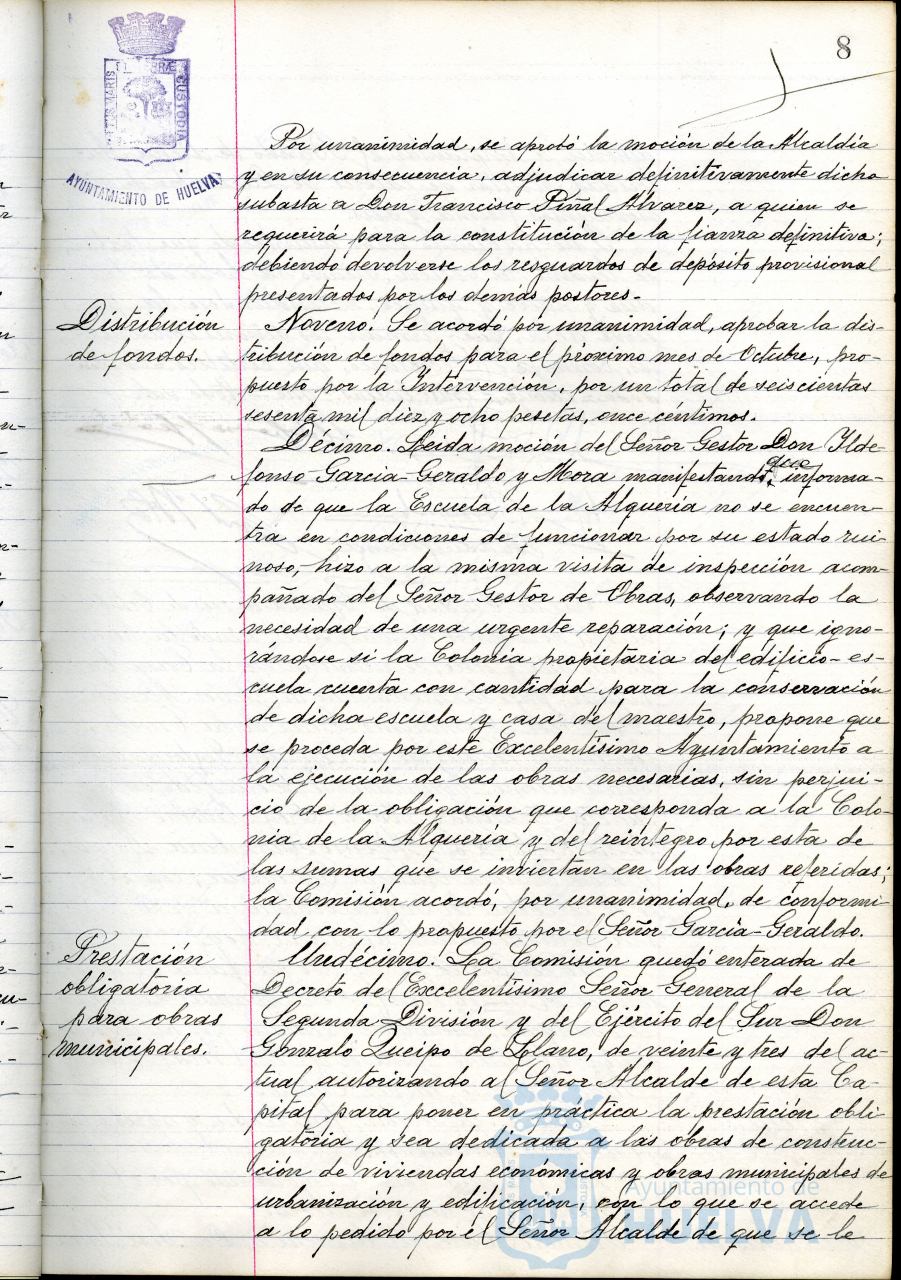 8
PORTUS MARIS ET TERRÆ CUSTODIA
AYUNTAMIENTO DE HUELVA
Por unanimidad, se aprobó la moción de la Alcaldía
y en su consecuencia, adjudicar definitivamente dicha
subasta a Don Francisco Piñal Alvarez, a quien se
requerirá para la constitución de la fianza definitiva;
debiendo devolverse los resguardos de depósito provisional
presentados por los demás postores.-
Distribución
de fondos.
Noveno. Se acordó por unanimidad, aprobar la dis-
tribución de fondos para el próximo mes de Octubre, pro-
puesto por la Intervención, por un total de seiscientas
sesenta mil diez y ocho pesetas, once céntimos.
Décimo. Leida moción del Señor Gestor Don Ilde-
fonso Garcia-Geraldo y Mora manifestando que informa-
do de que la Escuela de la Alquería no se encuen-
tra en condiciones de funcionar por su estado rui-
noso, hizo a la misma visita de inspección acom-
pañado del Señor Gestor de Obras, observando la
necesidad de una urgente reparación; y que igno-
rándose si la Colonia propietaria del edificio-es-
cuela cuenta con cantidad para la conservación
de dicha escuela y casa del maestro, propone que
se proceda por este Excelentísimo Ayuntamiento a
la ejecución de las obras necesarias, sin perjui-
cio de la obligación que corresponda a la Colo-
nia de la Alquería y del reintegro por esta de
las sumas que se inviertan en las obras referidas;
la Comisión acordó, por unanimidad, de conformi-
dad con lo propuesto por el Señor García-Geraldo.
Prestación
obligatoria
para obras
municipales.
Undécimo. La Comisión quedó enterada de
Decreto del Excelentísimo Señor General de la
Segunda División y del Ejército del Sur Don
Gonzalo Queipo de Llano, de veinte y tres del ac-
tual autorizando al Señor Alcalde de esta Ca-
pital para poner en práctica la prestación obli-
gatoria y sea dedicada a las obras de construc-
ción de viviendas económicas y obras municipales de
urbanización y edificación, con lo que se accede
a lo pedido por el Señor Alcalde de que se le
Ayuntamiento de
HUELVA